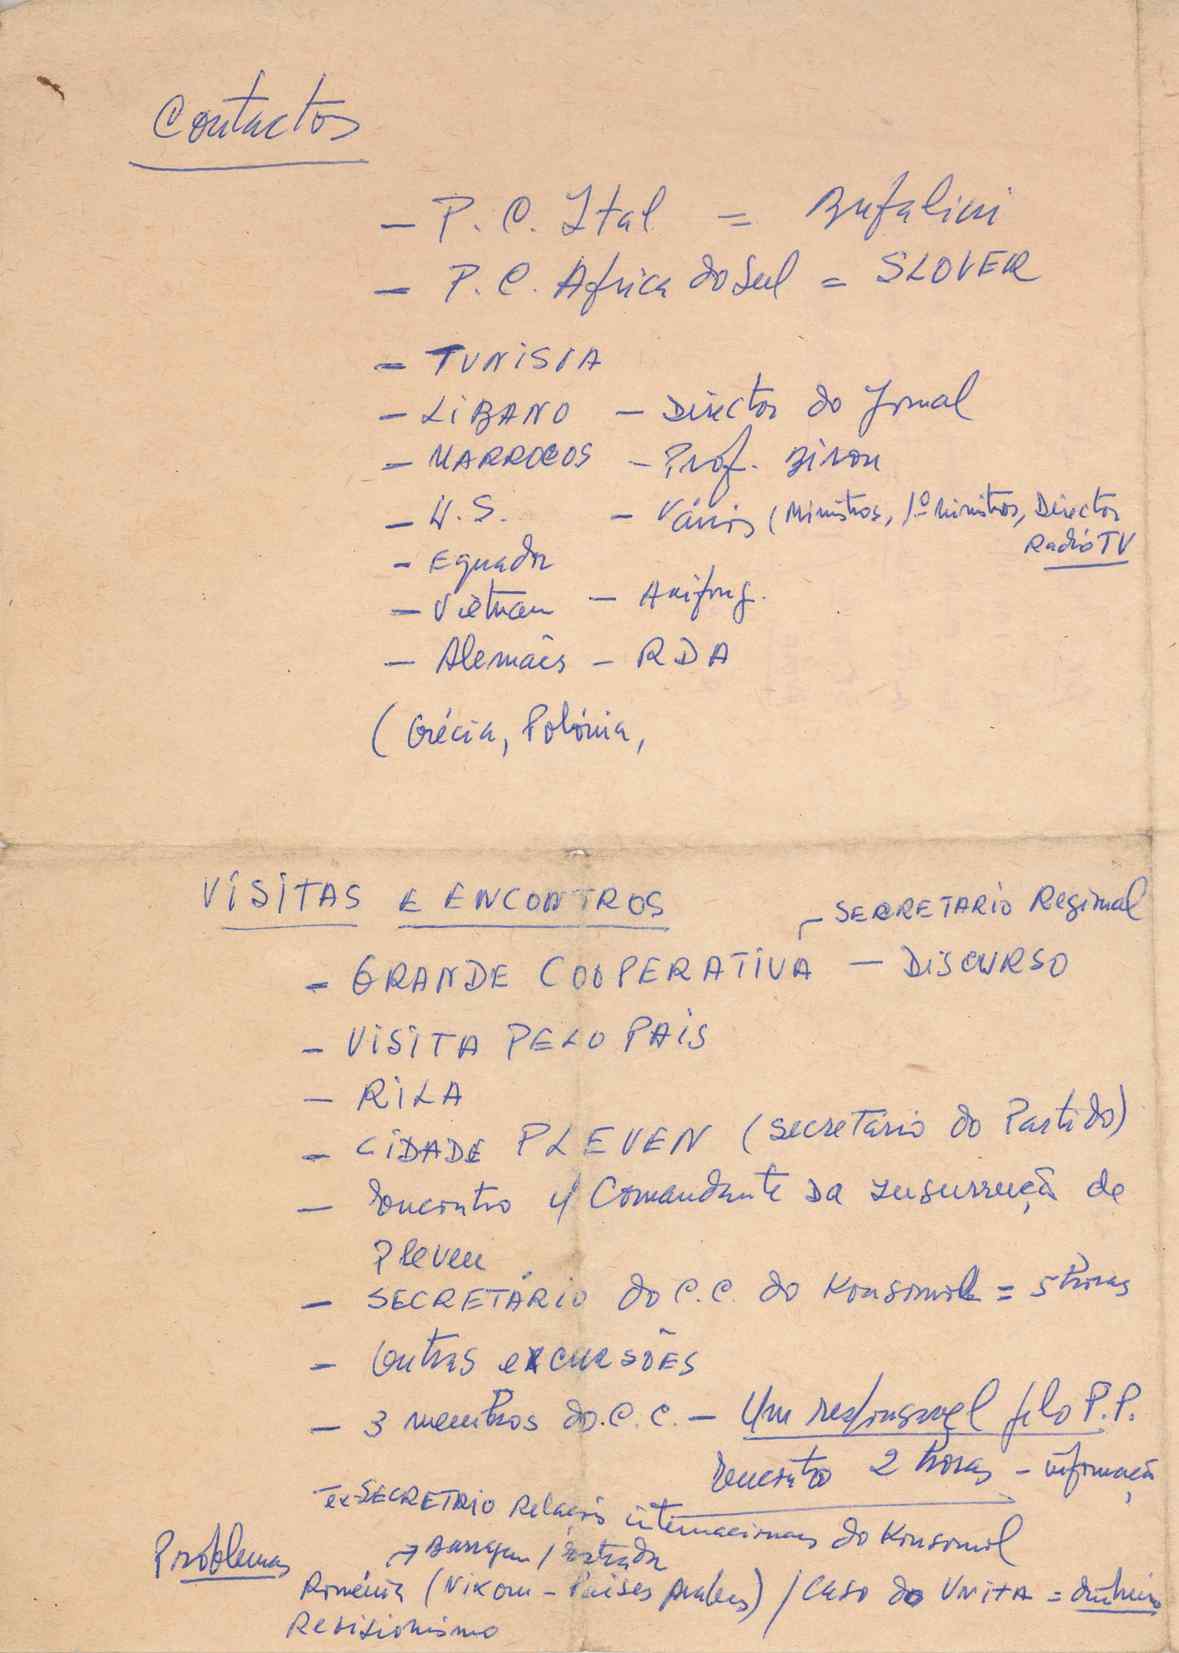 Contactos
— P. C. Ital = Bufalini
— P. C. Africa do Sul = SLOVER
— TUNISIA
— LIBANO — Director do Jornal
— MARROCOS — Prof.
— U. S. — Vários (Ministros, 1º Ministros, Director
Radio TV
— Equador
— Vietnam —
— Alemães — RDA
( Grécia, Polónia,
VISITAS E ENCONTROS
— SECRETARIO Regional
— GRANDE COOPERATIVA — DISCURSO
— VISITA PELO PAIS
— RILA
— CIDADE PLEVEN (Secretário do Partido)
— Encontro c/ Comandante DA Insurreição de
Pleven
— SECRETÁRIO do C.C. do Konsomol = 5 horas
— Outras excursões
— 3 membros do C.C. — Um responsavel pelo P.P.
Encontro 2 horas — informação
— ex-SECRETRIO Relações internacionais do Konsomol
Problemas
→ Barragem / Estrada
Roménia (Nixon — Paises Arabes) / Caso do UNITA = dinheiro
Revisionismo